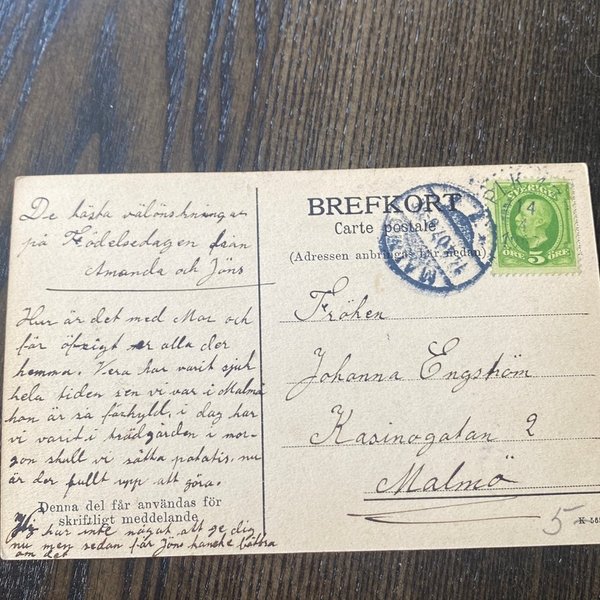 De bästa välönskningar
på Födelsedagen från
Amanda och Jöns
Hur är det med Mor och
för öfrigt er alla der
hemma. Vera har varit sjuk
hela tiden sen vi var i Malmö
hon är så förkyld, i dag har
vi varit i trädgården i mor-
gon skull vi sätta potatis, nu
är der fullt upp att göra.
Denna del får användas för
skriftligt meddelande
har inte något att ge dig
nu men sedan får Jöns kanske bättra
om det
BREFKORT
Carte postale
(Adressen anbringas här nedan)
SVERIGE
ÖRE 5 ÖRE
Fröken
Johanna Engström
Kasinogatan 2
Malmö
5